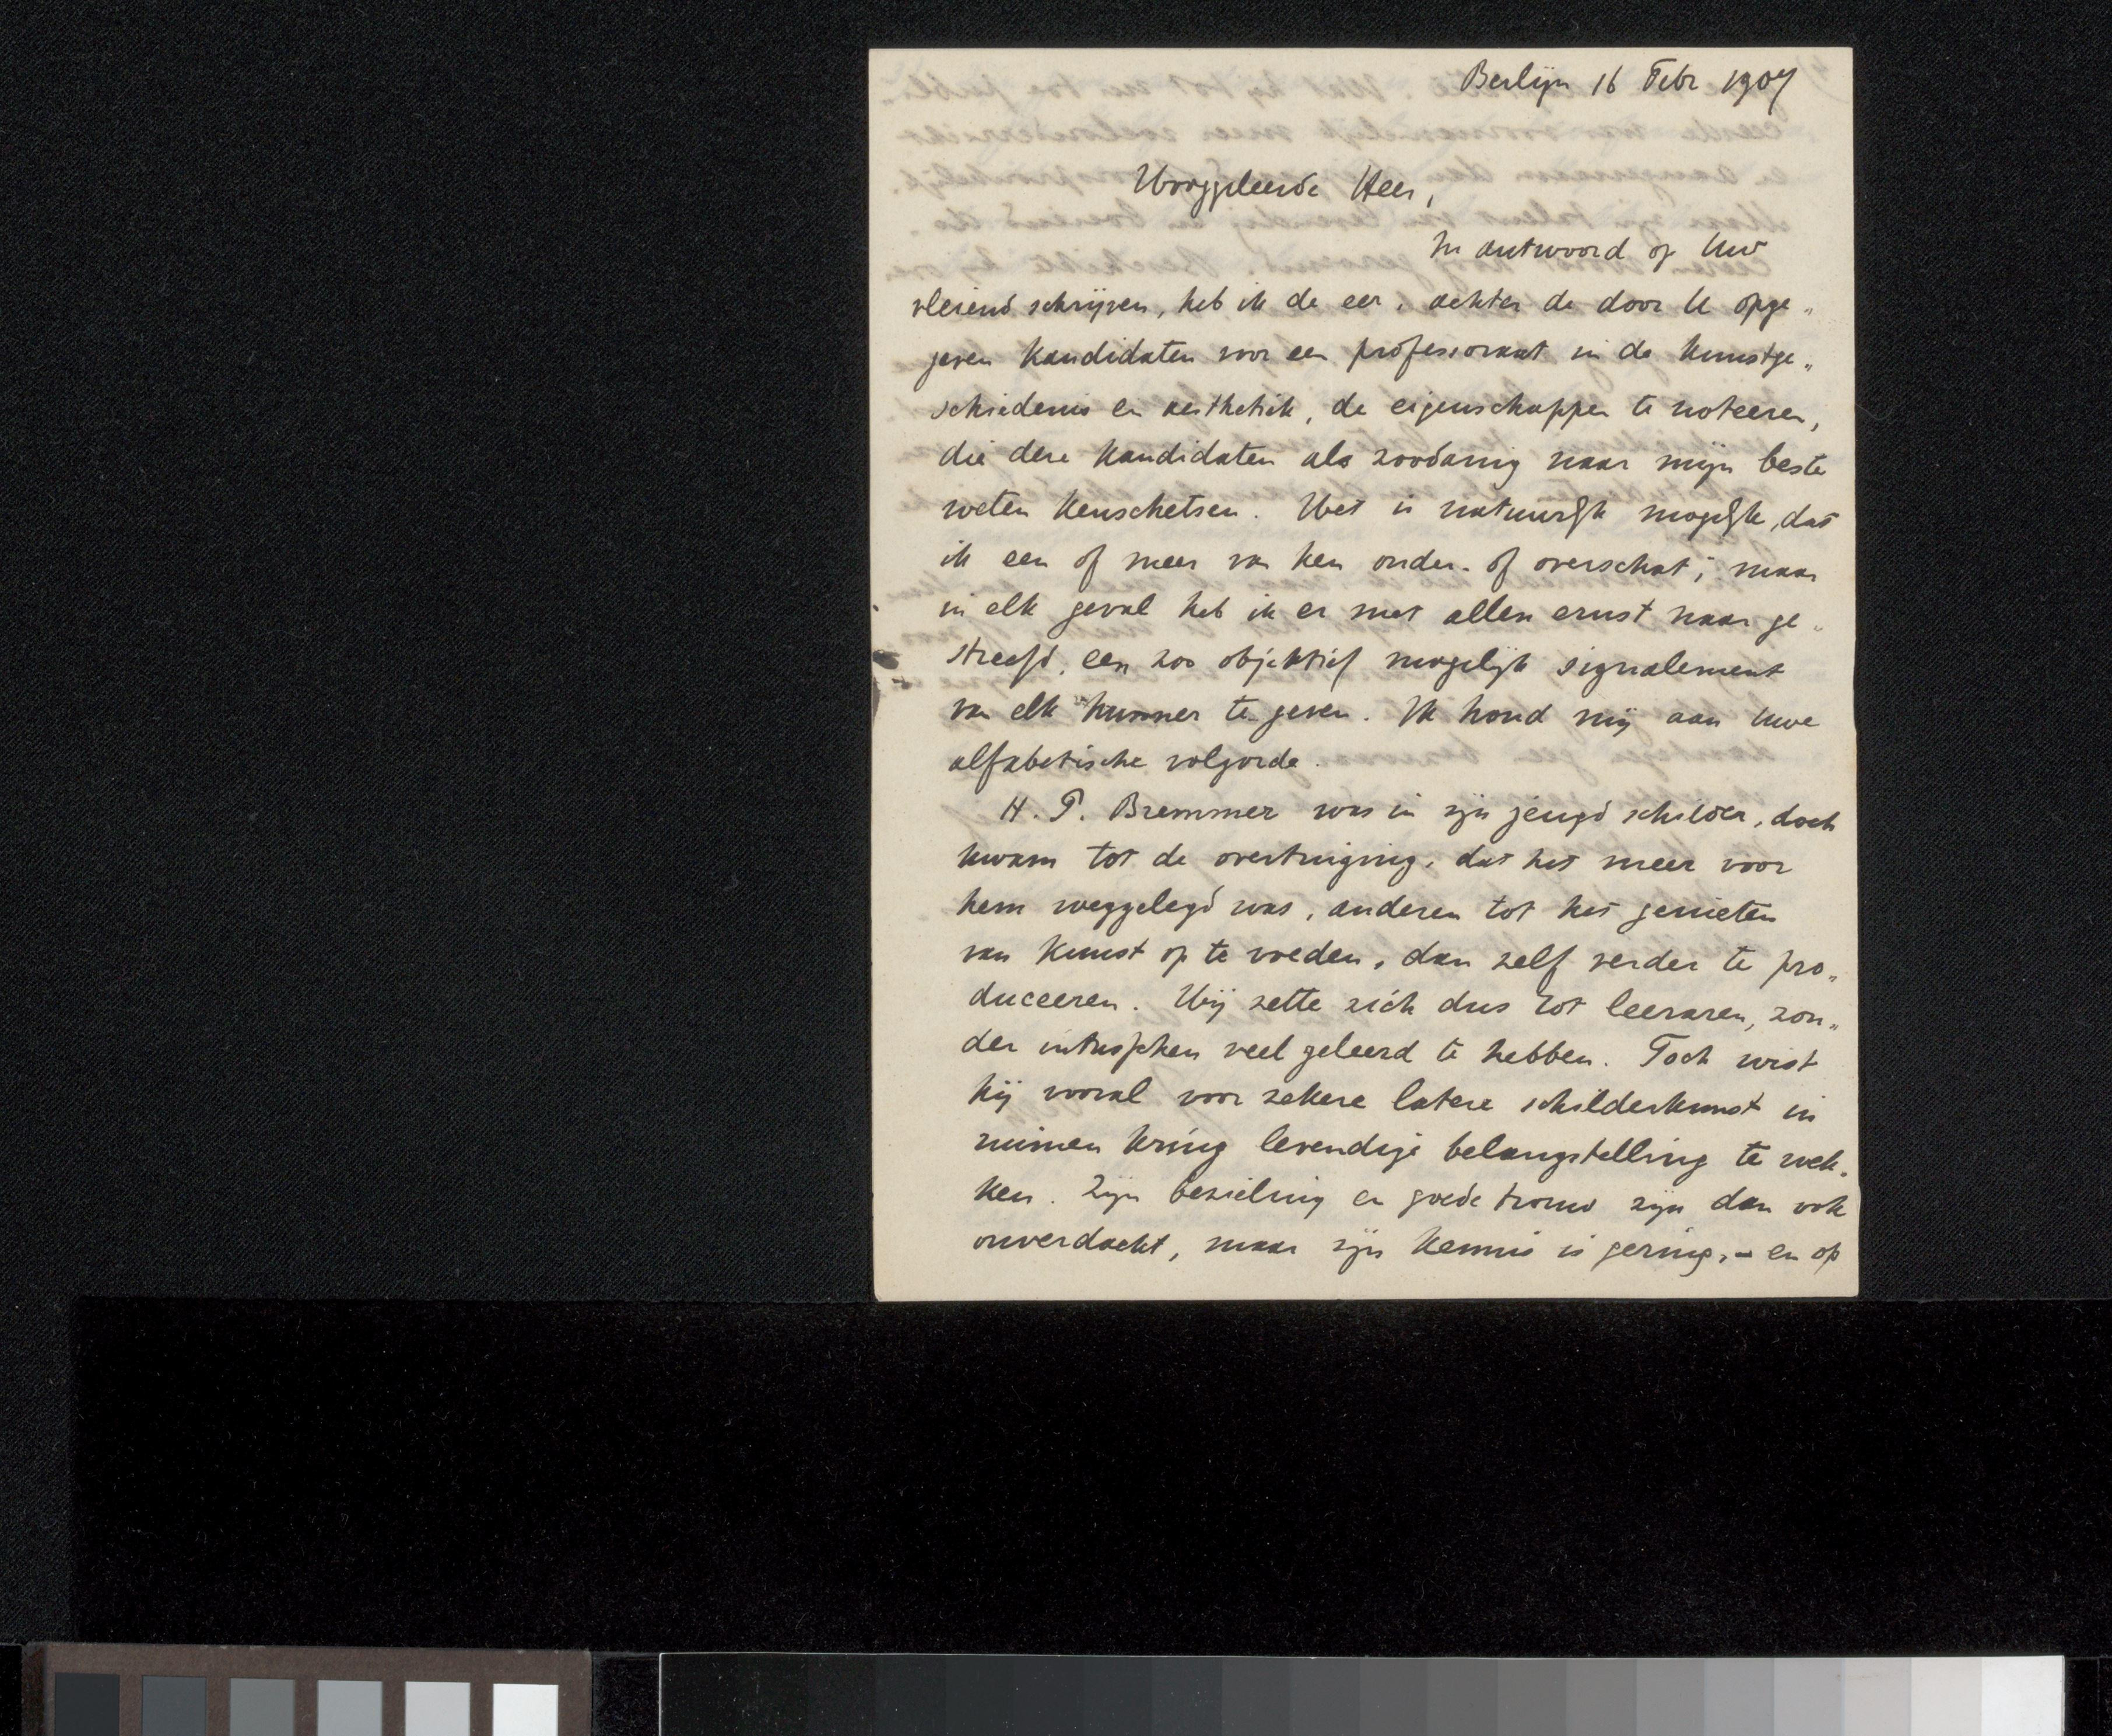 Berlijn 16 Febr 1907
Hooggeleerde Heer,
In antwoord op Uw
vleiend schrijven, heb ik de eer, achter de door U opge„
geven kandidaten voor een professoraat in de kunstge„
schiedenis en aesthetiek, de eigenschappen te noteeren,
die deze kandidaten als zoodanig naar mijn beste
weten kenschetsen. Het is natuurlijk mogelijk, dat
ik een of meer van hen onder- of overschat; maar
in elk geval heb ik er met allen ernst naar ge„
streefd, een zoo objektief mogelijk signalement
van elk hunner te geven. Ik houd mij aan Uwe
alfabetische volgorde.
H. P. Bremmer was in zijn jeugd schilder, doch
kwam tot de overtuiging, dat het meer voor
hem weggelegd was, anderen tot het genieten
van kunst op te voeden, dan zelf verder te pro„
duceeren. Hij zette zich dus tot leeraren, zon„
der intusschen veel geleerd te hebben. Toch wist
hij vooral voor zekere latere schilderkunst in
ruimen kring levendige belangstelling te wek„
ken. Zijn bezieling en goede trouw zijn dan ook
onverdacht, maar zijn kennis is gering, – en op